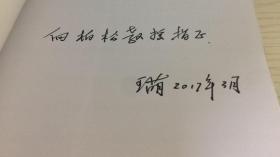 向柏松教授指正
王萌 2017年3月